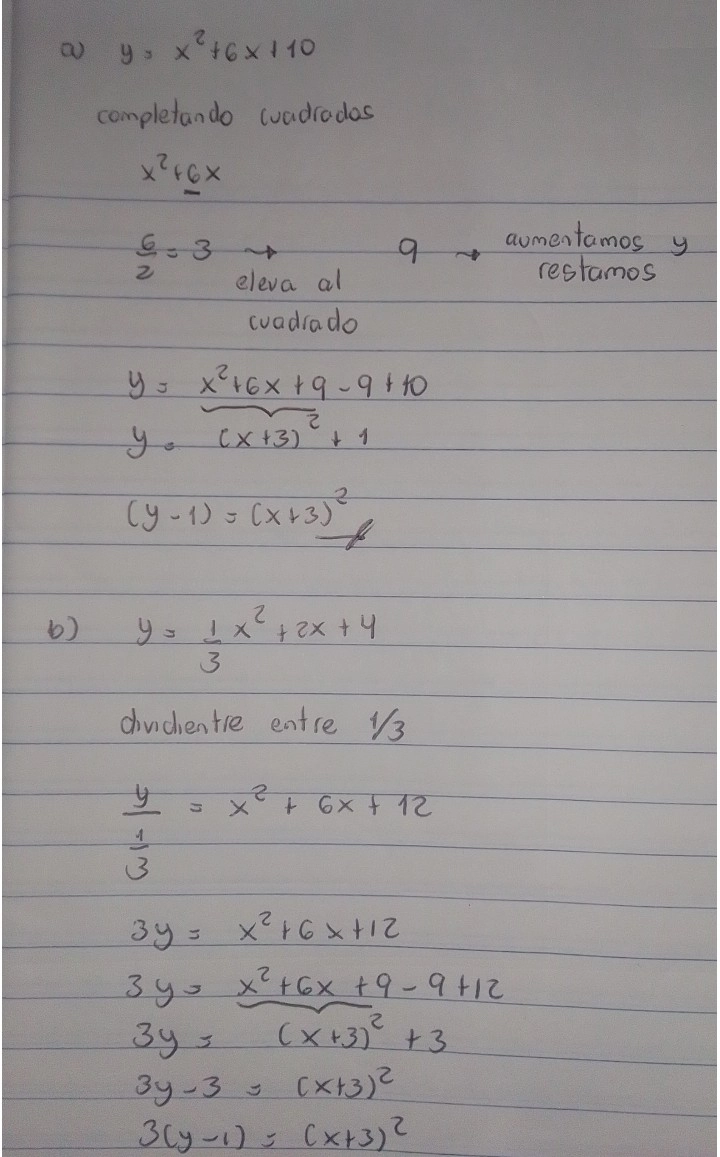 a) y = x²+6x+10
completando cuadrados
x²+6x
6/2 = 3 → eleva al cuadrado 9 → aumentamos y restamos
y = x²+6x+9-9+10
y = (x+3)²+1
(y-1) = (x+3)²
b) y = 1/3 x²+2x+4
dividientre entre 1/3
y/(1/3) = x²+6x+12
3y = x²+6x+12
3y = x²+6x+9-9+12
3y = (x+3)²+3
3y-3 = (x+3)²
3(y-1) = (x+3)²